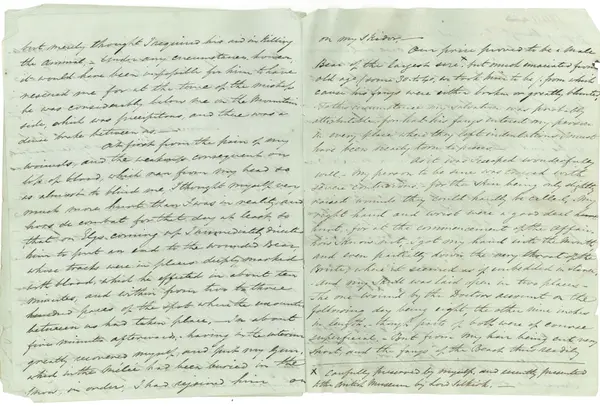 but merely thought I required his aid in killing
the animal. Under any circumstances however
it would have been impossible for him to have
rescued me for at the time of the mishap
he was considerably below me on the Mountain
side, which was precipitous, and there was a
between us.
At first from the pain of my
wounds, and the weakness consequent on
loss of blood, which ran from my head so
as almost to blind me, I thought myself very
much more hurt than I was in reality, and
hors de combat for that day at least, so
that on coming up I immediately directed
him to put an end to the wounded Bear
whose tracks were in places deeply marked
with blood, which he effected in about ten
minutes, and within from two to three
hundred paces of the spot where the encounter
between us had taken place,—in about
five minutes afterwards, having in the interim
greatly recovered myself, and put my Gun,
which in the melée had been buried in the
Snow, in order, I had rejoined him on
on my
Our prize proved to be a Male
Bear of the largest size, but much emaciated from
old age from which
cause his fangs were either broken or greatly blunted
my situation was probably
attributable for had his fangs entered my person
in every place where they left indentations I must
have been nearly torn to pieces.
As it was I escaped wonderfully
well. My person to be sure was covered with
severe contusions. For the skin being only slightly
wounds they could hardly be called. My
right hand and wrist were a good deal
hurt, for at the commencement of the affair,
I got my hand into the Mouth
and even partially down the very throat of the
Brute, where it seemed as if embedded in
and my was laid open in two places.
The one wound by the Doctors account on the
following day being eight, the other nine inches
in length, though parts of both were of course
superficial. But from my hair being cut very
short, and the fangs of the Beast thus readily
x Carefully preserved by myself, and recently presented
to the British Museum by Lord Selkirk.